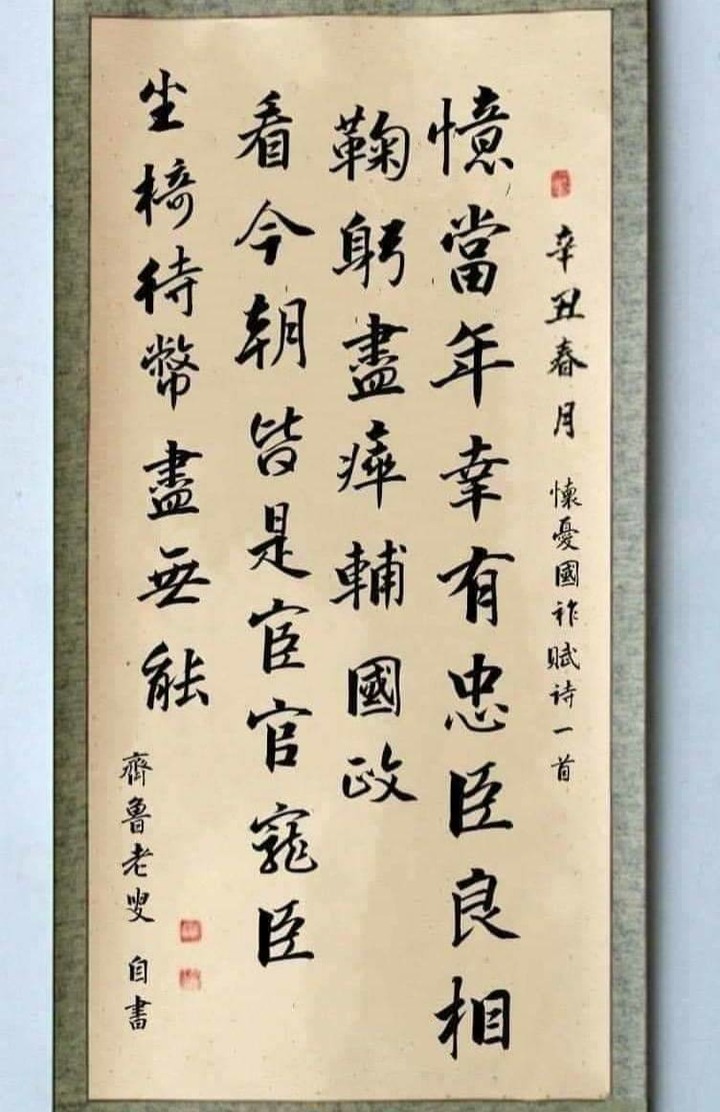 辛丑春月 懷憂國祚賦诗一首
憶當年幸有忠臣良相
鞠躬盡瘁輔國政
看今朝皆是宦官寵臣
坐椅待幣盡無能
齊魯老叟 自書